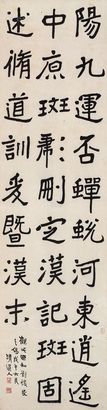 陽九運否蟬蛻河東逍遙
中原斑彪刪定漢記斑固
述脩道訓爰暨漢末
清道人